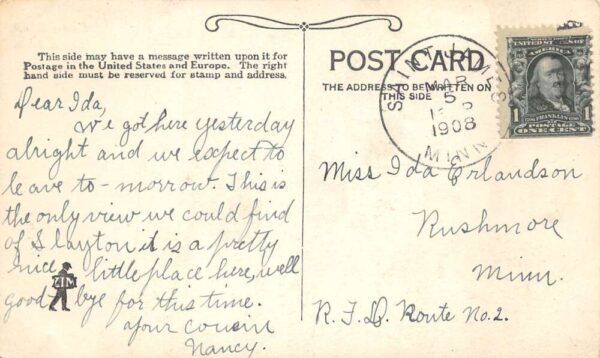 This side may have a message written upon it for
Postage in the United States and Europe. The right
hand side must be reserved for stamp and address.
Dear Ida,
We got here yesterday
alright and we expect to
leave to-morrow. This is
the only view we could find
of Slayton it is a pretty
nice little place here, well
good bye for this time.
your cousin
Nancy.
ZIM
POST CARD
THE ADDRESS TO BE WRITTEN ON
THIS SIDE
SAINT JAMES
MAR
5
1908
MINN
FRANKLIN
POSTAGE
1 ONE CENT 1
Miss Ida Erlandson
Rushmore
Minn.
R.F.D. Route No. 2.